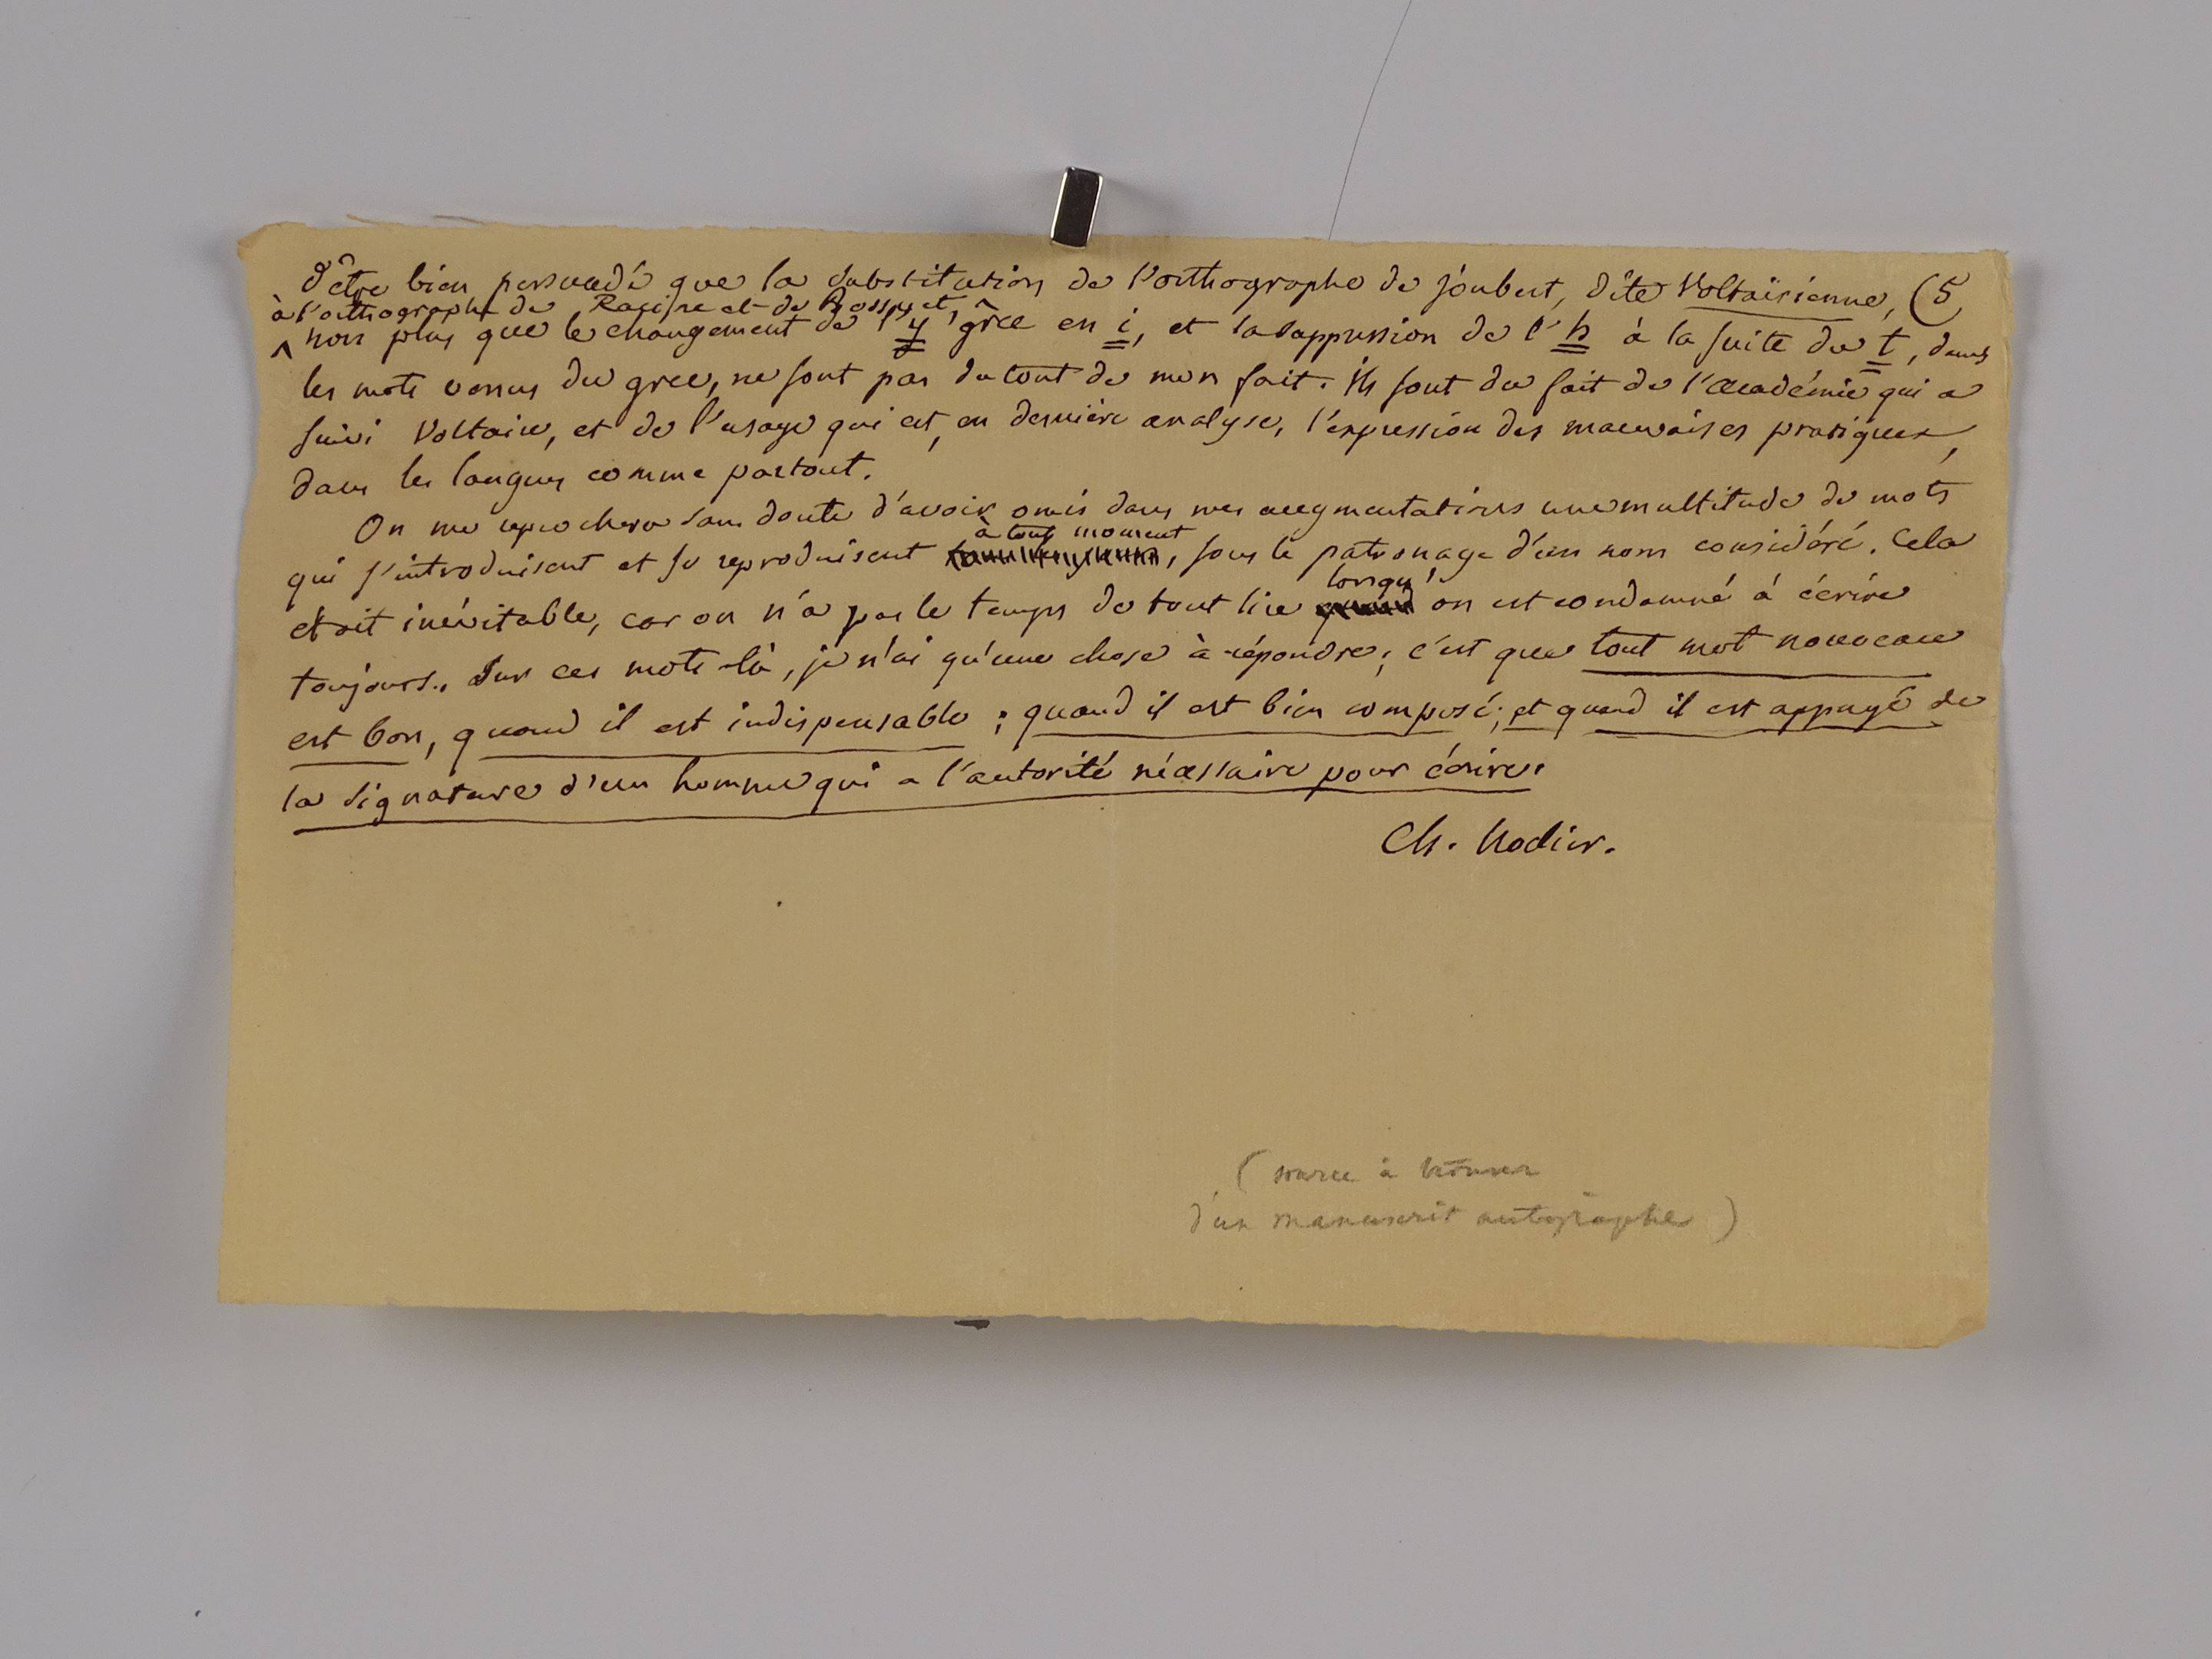 d'être bien persuadé que la substitution de l'orthographe de Joubert, dite Voltairienne, (5
à l'orthographe de Racine et de Bossuet,
non plus que le changement de l'y grec en i, et la suppression de l'h à la suite du t, dans
les mots venus du grec, ne sont pas du tout de mon fait. Ils sont du fait de l'académie qui a
suivi Voltaire, et de l'usage qui est, en dernière analyse, l'expression des mauvaises pratiques,
dans les langues comme partout.
On me reprochera sans doute d'avoir omis dans mes augmentations une multitude de mots
à tout moment
qui s'introduisent et se reproduisent , sous le patronage d'un nom considéré. Cela
lorsqu'
etoit inévitable, car on n'a pas le temps de tout lire quand on est condamné à écrire
toujours. Sur ces mots-là, je n'ai qu'une chose à répondre; c'est que tout mot nouveau
est bon, quand il est indispensable; quand il est bien composé; et quand il est appuyé de
la signature d'un homme qui a l'autorité nécessaire pour écrire.
Ch. Nodier.
(source à
d'un manuscrit autographe)